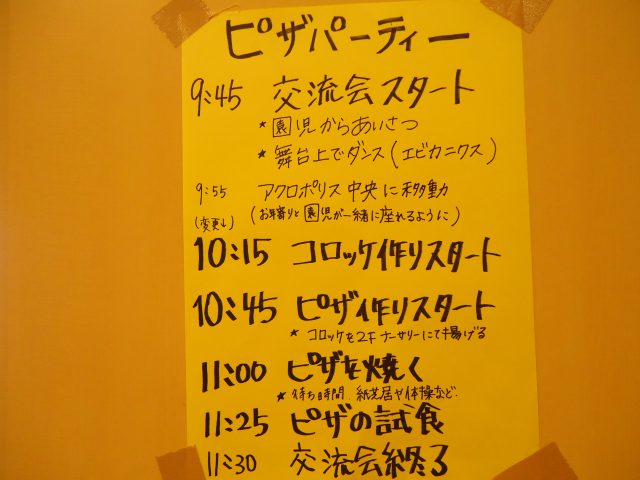 ピザパーティー
9:45 交流会スタート
★園児からあいさつ
★舞台上でダンス(エビカニクス)
9:55 アクロポリス中央に移動
(お年寄りと園児が一緒に座れるように)
(変更↓)
10:15 コロッケ作りスタート
10:45 ピザ作りスタート
★コロッケを2Fナーサリーにて揚げる
11:00 ピザを焼く
★待ち時間、紙芝居や体操など.
11:25 ピザの試食
11:30 交流会終る